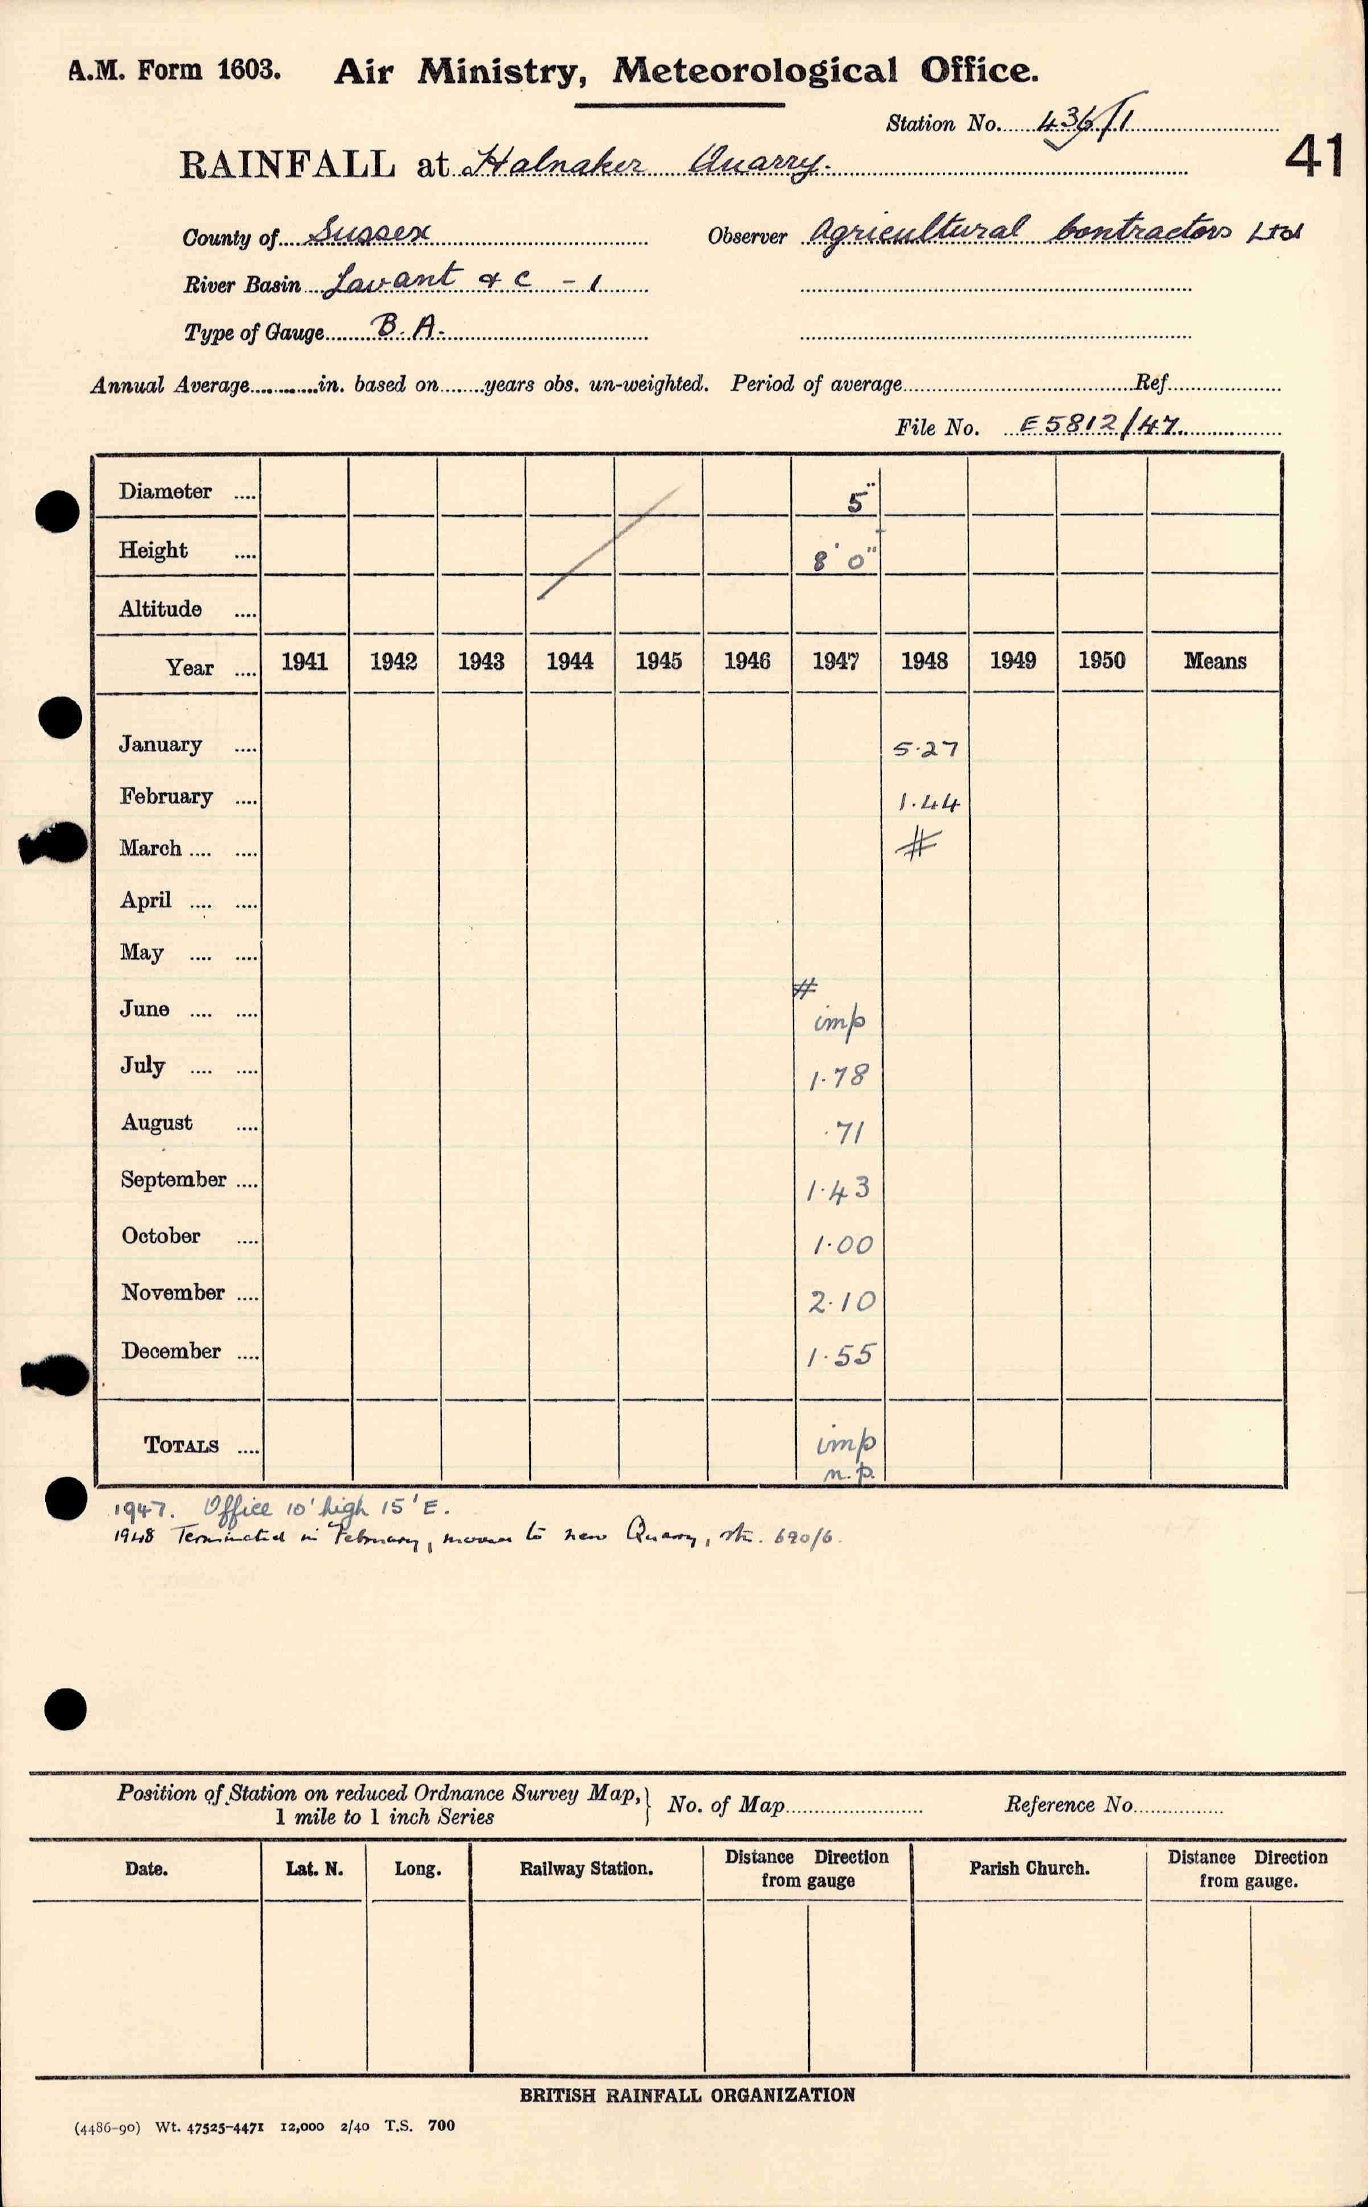 A.M. Form 1603. Air Ministry, Meteorological Office.
Station No. 436/1
41
RAINFALL at Halnaker Quarry.
County of Sussex Observer Agricultural Contractors Ltd
River Basin Lavant &c - 1
Type of Gauge B.A.
Annual Average in. based on years obs. un-weighted. Period of average Ref
File No. E5812/47.
Diameter .... 5"
Height .... 8' 0"
Altitude ....
Year .... 1941 1942 1943 1944 1945 1946 1947 1948 1949 1950 Means
January .... 5.27
February .... 1.44
March .... .... #
April .... ....
May .... ....
#
June .... .... imp
July .... .... 1.78
August .... .71
September .... 1.43
October .... 1.00
November .... 2.10
December .... 1.55
TOTALS .... imp
n.p.
1947. Office 10' high 15' E.
1948 Terminated in February, moved to new Quarry, stn. 620/6.
Position of Station on reduced Ordnance Survey Map,} No. of Map Reference No.
1 mile to 1 inch Series
Date. Lat. N. Long. Railway Station. Distance Direction from gauge Parish Church. Distance Direction from gauge.
BRITISH RAINFALL ORGANIZATION
(4486-90) Wt. 47525-4471 12,000 2/40 T.S. 700